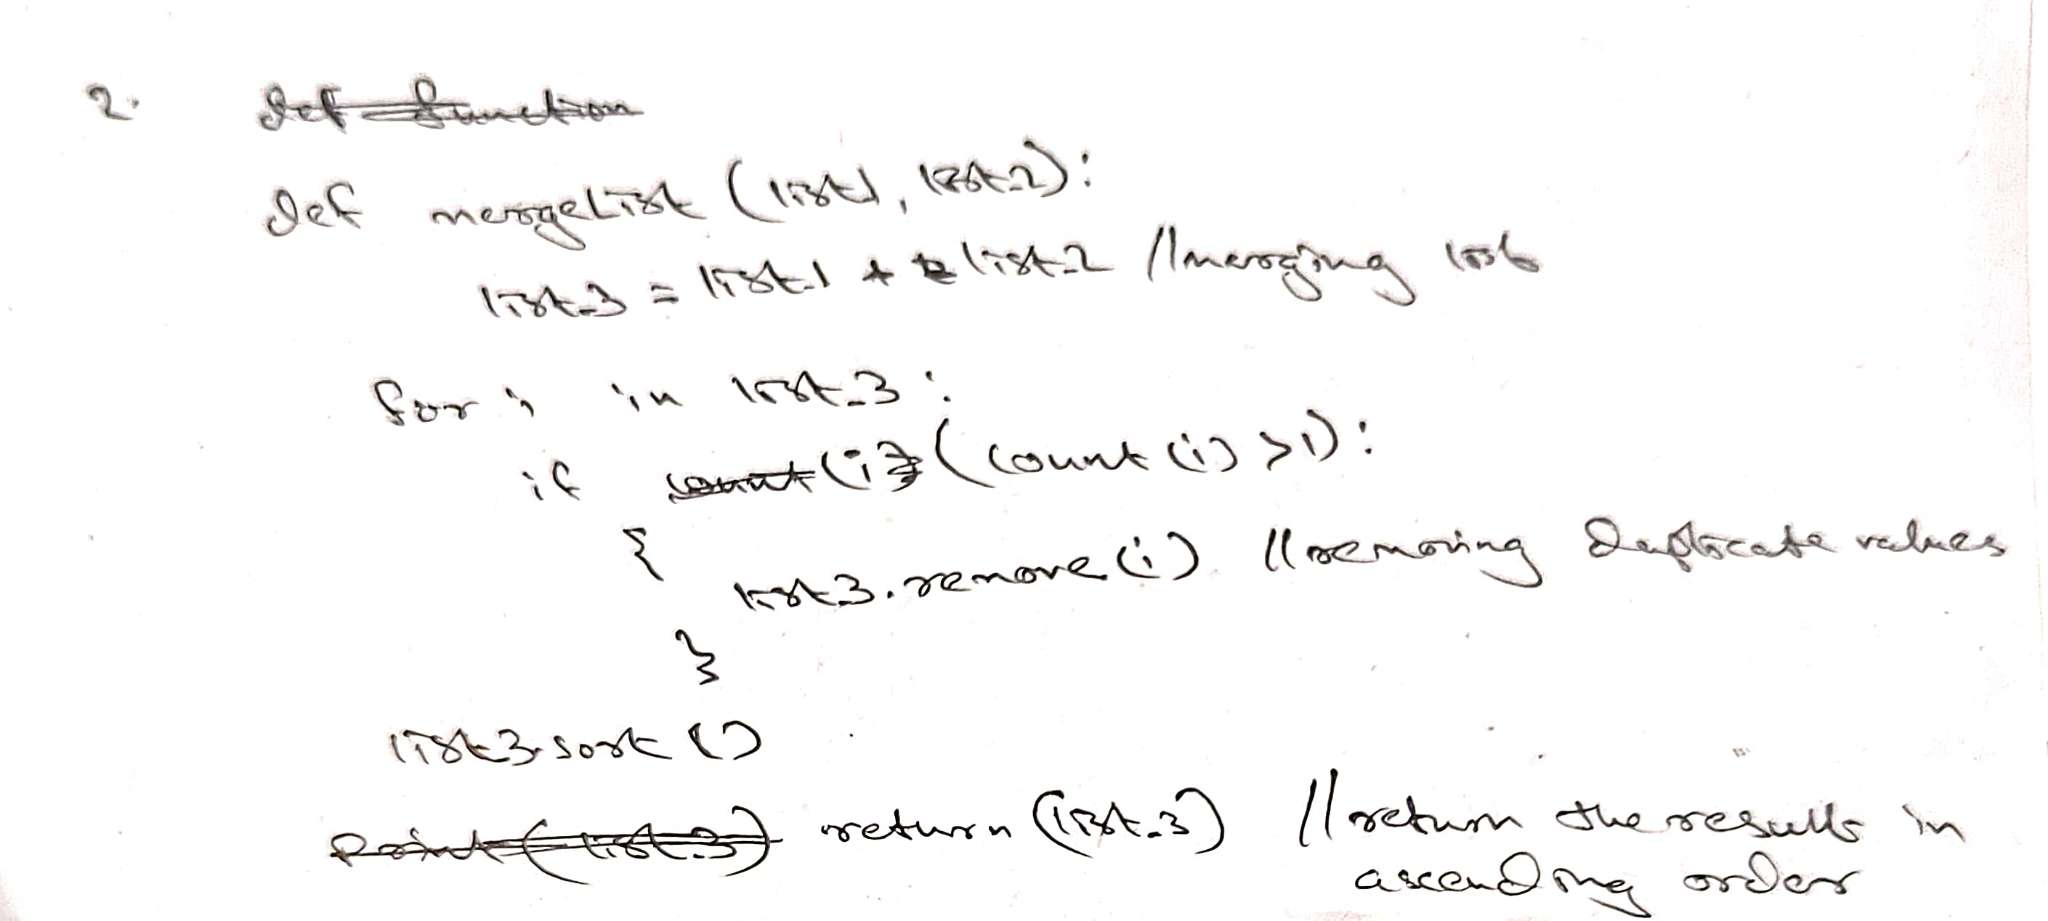 2. def function
def mergeList (list1, list_2):
list_3 = list_1 + list_2 //merging list
for i in list_3 :
if count(i) (count (i) >1):
{
list3.remove (i) //removing duplicate values
}
list3.sort ()
Print(list_3) return (list_3) //return the results in
ascending order